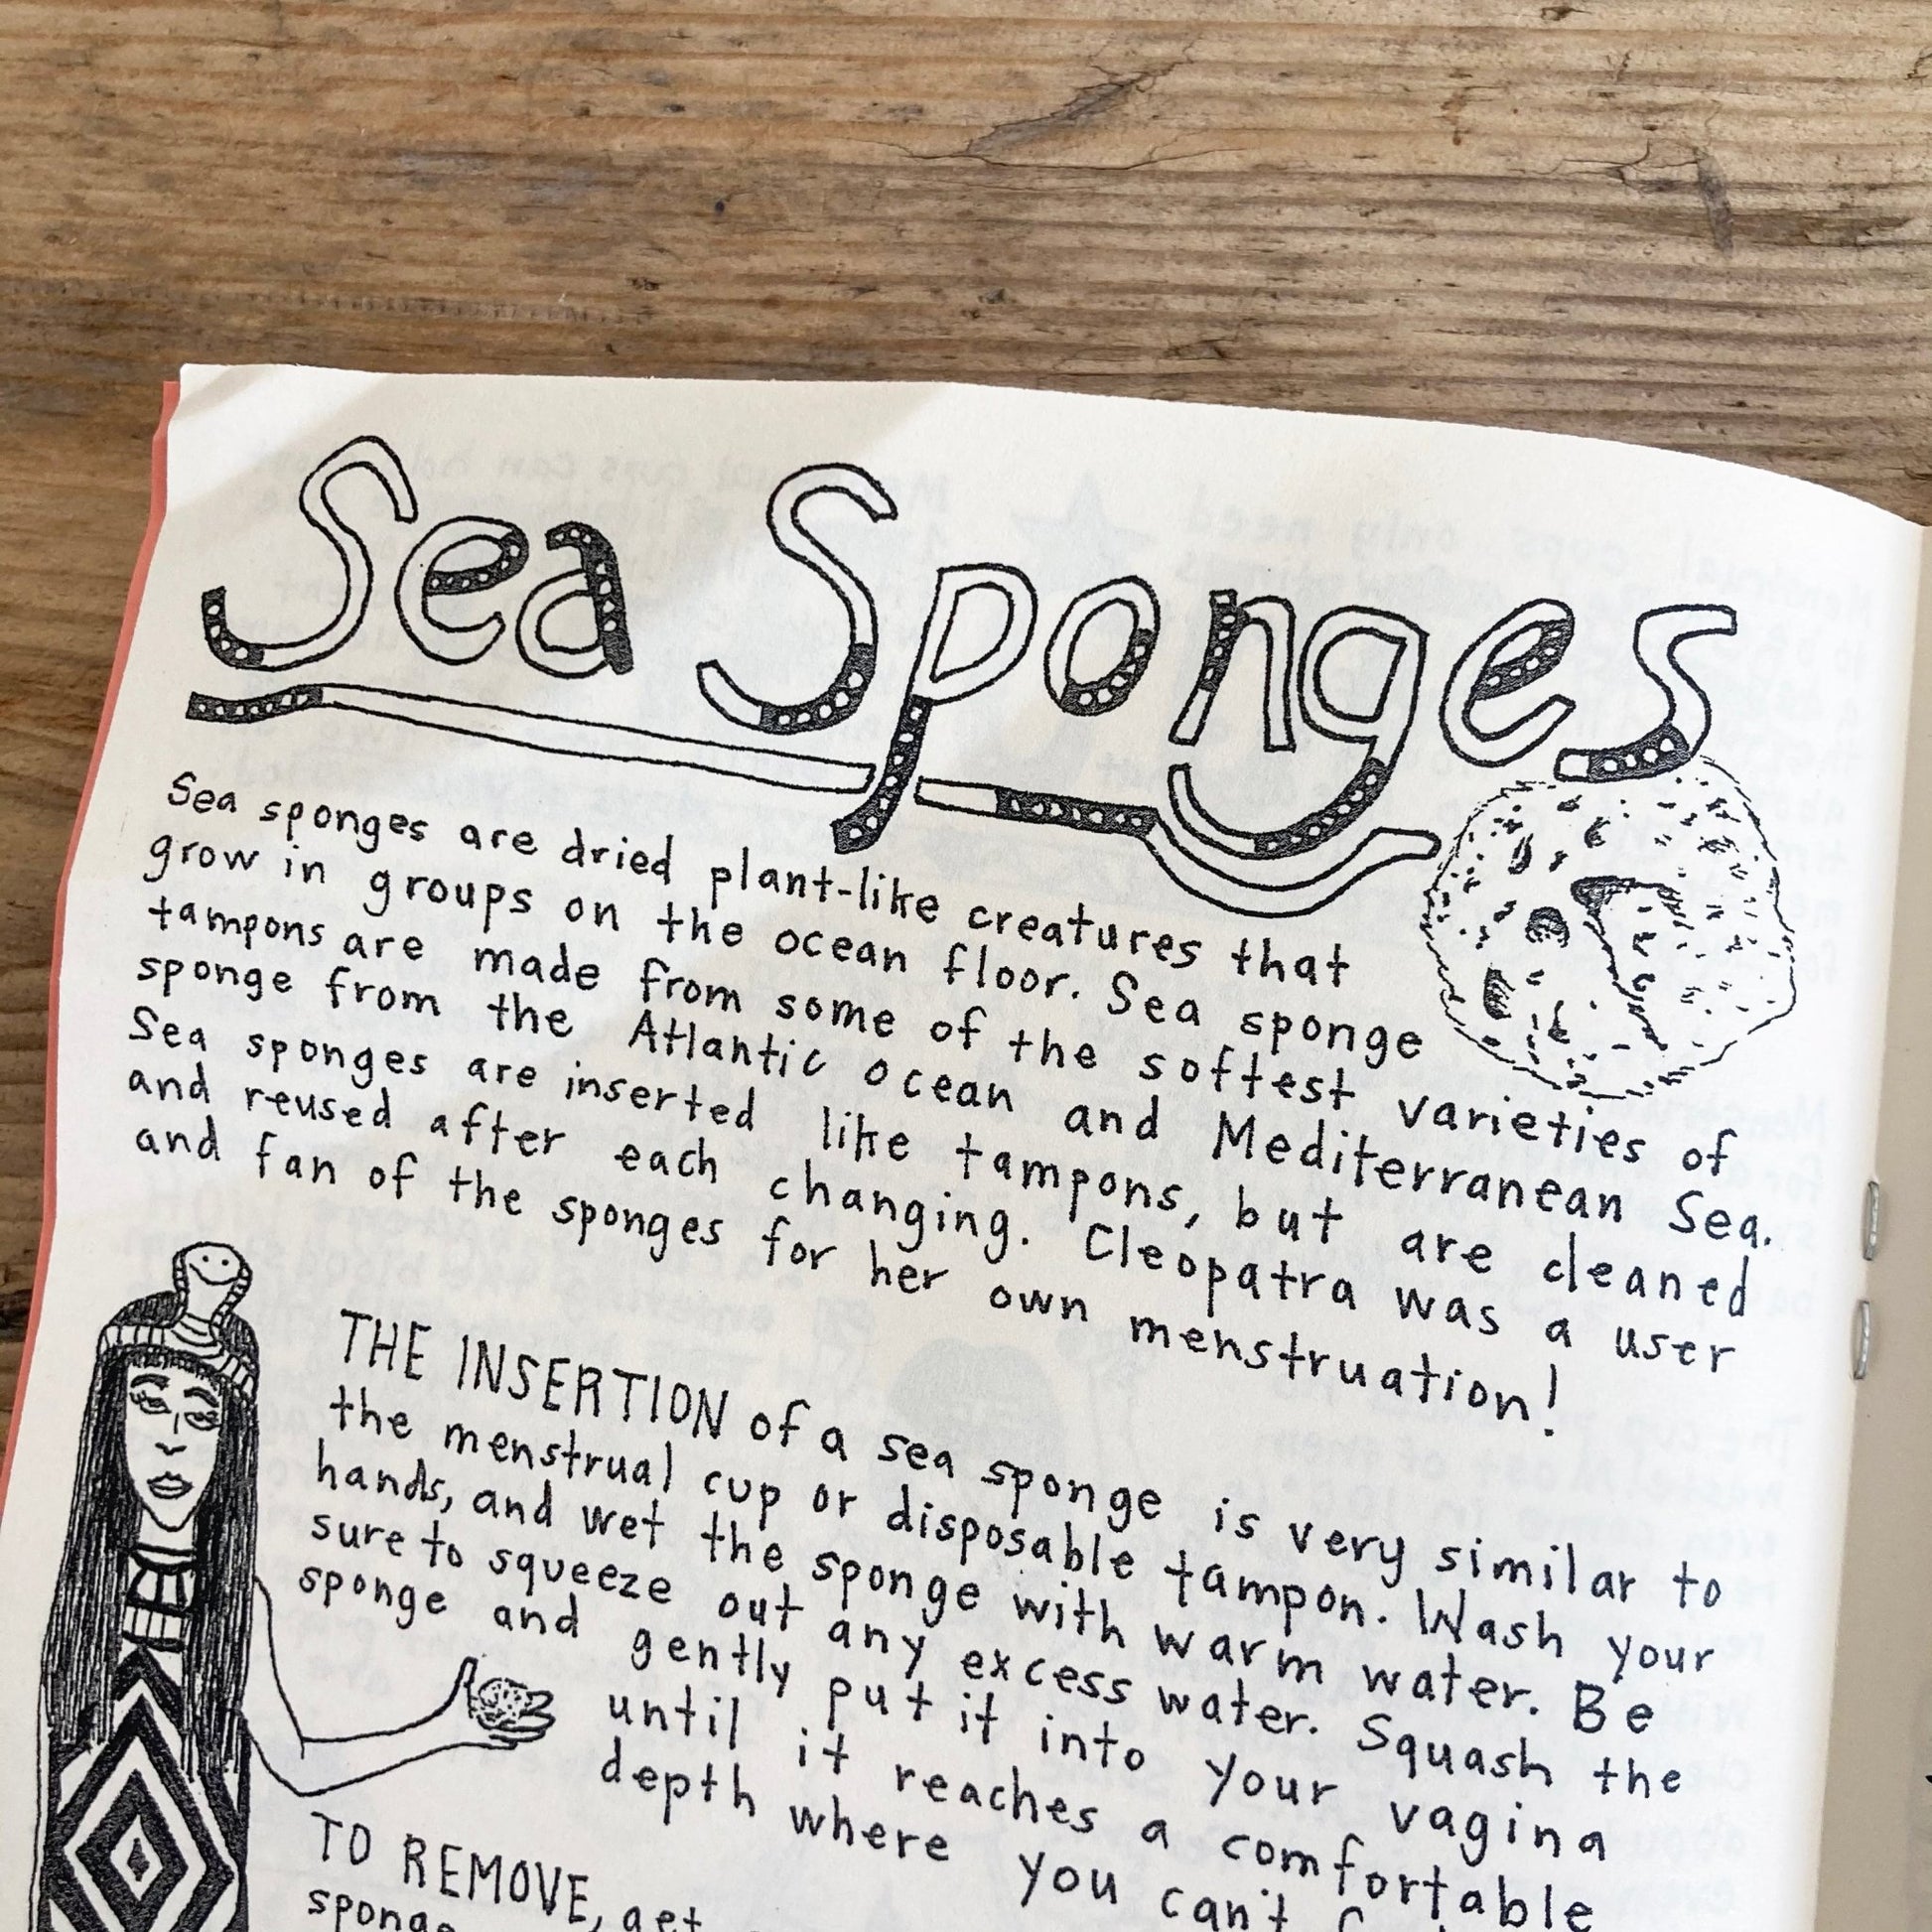 Sea Sponges
Sea sponges are dried plant-like creatures that
grow in groups on the ocean floor. Sea sponge
tampons are made from some of the softest varieties of
sponge from the Atlantic Ocean and Mediterranean Sea.
Sea sponges are inserted like tampons, but are cleaned
and reused after each changing. Cleopatra was a user
and fan of the sponges for her own menstruation!
THE INSERTION of a sea sponge is very similar to
the menstrual cup or disposable tampon. Wash your
hands, and wet the sponge with warm water. Be
sure to squeeze out any excess water. Squash the
sponge and gently put it into your vagina
until it reaches a comfortable
depth where you can't
TO REMOVE, get